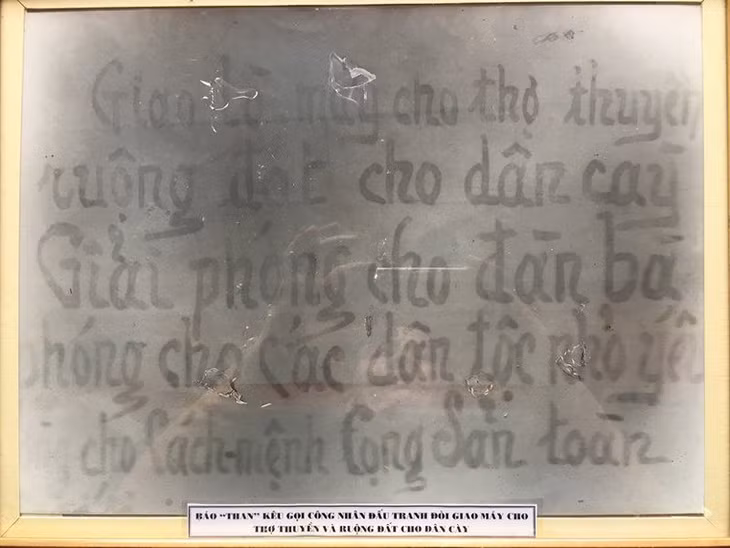 Giao máy cho thợ thuyền
ruộng đất cho dân cày
Giải phóng cho đàn bà
phóng cho các dân tộc nhỏ yếu
cho Cách-mệnh Cọng Sản toàn
BÁO "THAN" KÊU GỌI CÔNG NHÂN ĐẤU TRANH ĐÒI GIAO MÁY CHO
THỢ THUYỀN VÀ RUỘNG ĐẤT CHO DÂN CÀY